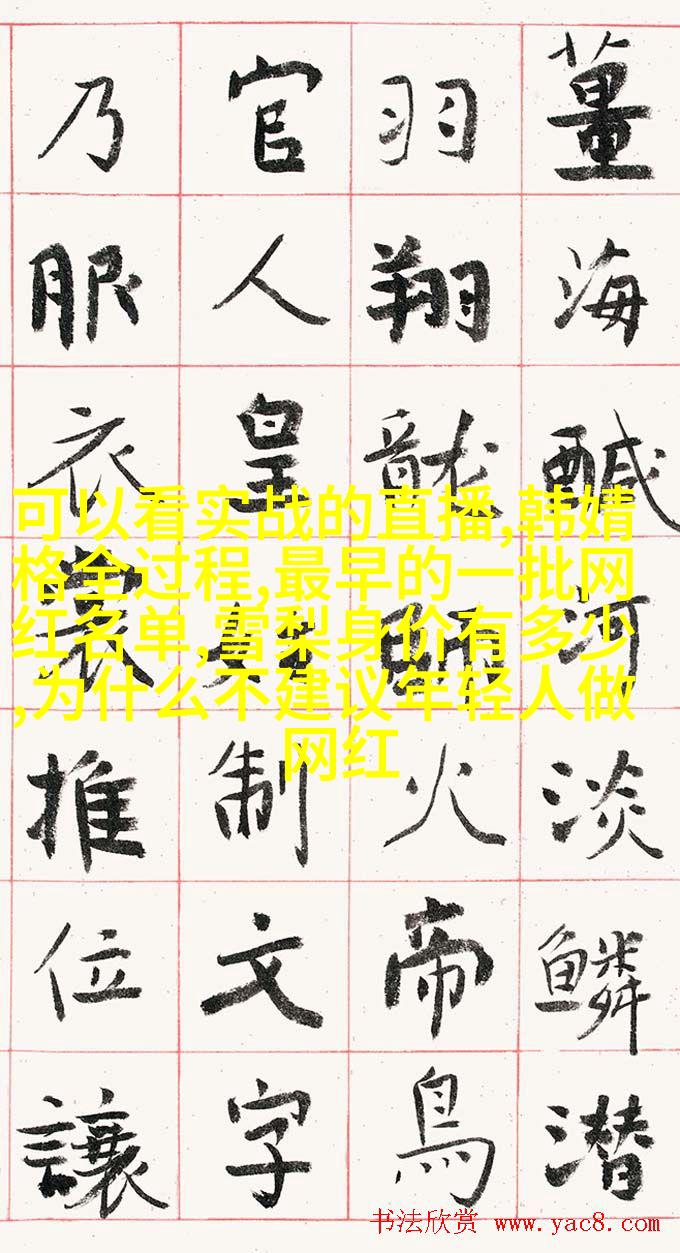 薑海醎河淡鱗潛
羽翔龍師火帝鳥
官人皇始制文字
乃服衣裳推位讓
可以看实战的直播,韩婧
格全过程,最早的一批网
红名单,雪梨身价有多少
,为什么不建议年轻人做
网红
书法欣赏 www.yac8.com